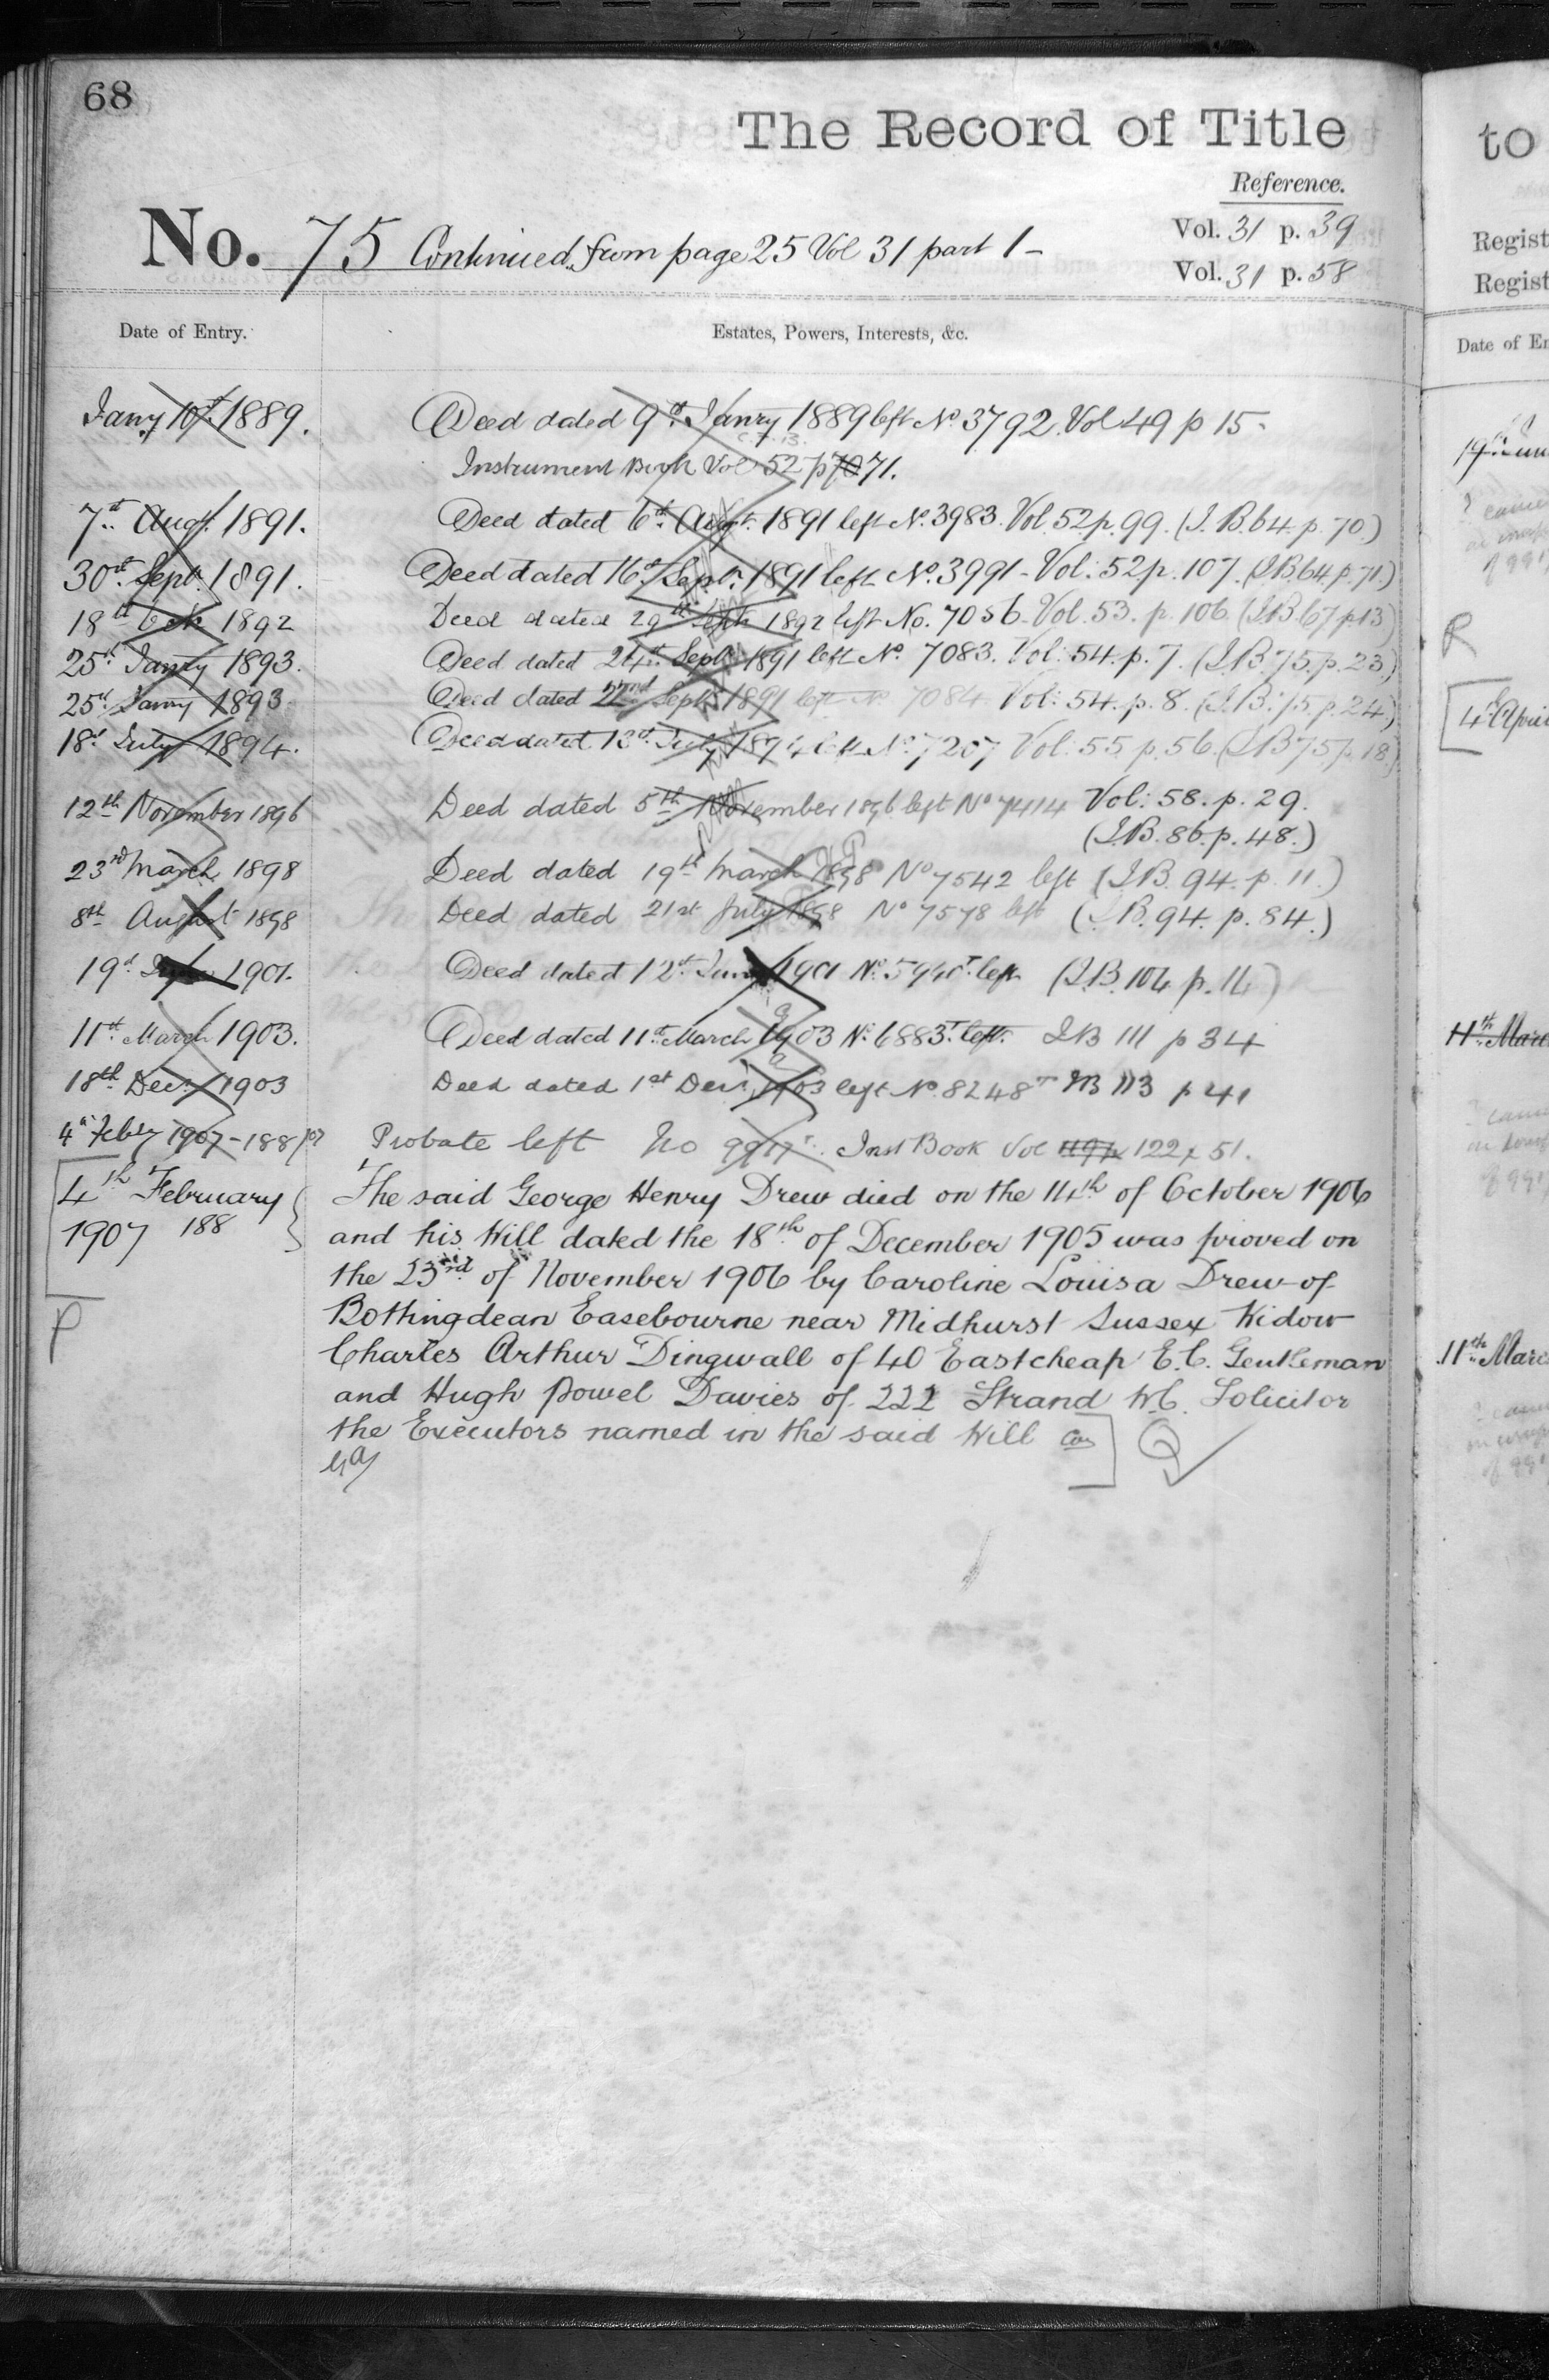 68
The Record of Title
Reference.
No. 75 Continued from page 25 Vol 31 part 1 -
Vol. 31 p. 39
Vol. 31 p. 58
Date of Entry. Estates, Powers, Interests, &c.
Jany 10th 1889. Deed dated 9th Janry 1889 left No 3792. Vol 49 p 15.
Instrument Book Vol 52 p 70 71.
7th Augt. 1891. Deed dated 6th Augt. 1891 left No. 3983. Vol. 52 p. 99. (I.B. 64. p. 70)
30th Sept. 1891. Deed dated 16th Sept. 1891 left No. 3991 - Vol: 52 p. 107. (I.B. 64. p. 71.)
18th Oct 1892 Deed dated 29th Sept 1892 left No. 7056. Vol. 53. p. 106. (I.B. 67 p 13)
25th Janry 1893. Deed dated 24th Sept 1891 left No. 7083. Vol: 54. p. 7. (I.B. 75. p. 23.)
25th Janry 1893. Deed dated 22nd Sept. 1891 left No 7084 Vol: 54. p. 8. (I.B. 75. p. 24)
18th July 1894. Deed dated 13th July 1894 left No. 7207 Vol. 55 p. 56. (I.B 75 p. 18.)
12th November 1896 Deed dated 5th November 1896 left No 7414 Vol: 58. p. 29.
(I.B. 86. p. 48.)
23rd March 1898 Deed dated 19th March 1898 No 7542 left (I.B. 94. p. 11.)
8th August 1898 Deed dated 21st July 1898 No 7578 left (I.B. 94. p. 84.)
19th June 1901. Deed dated 12th June 1901 No. 5940T. left (I.B. 104 p. 14)
11th March 1903. Deed dated 11th March 1903 No. 6883T. left. I.B 111 p 34
18th Decr. 1903 Deed dated 1st Decr. 1903 left No. 8248T IB 113 p 41
4th Feby 1907 - 188/07 Probate left No Inst Book Vol 122 p 51.
4th February The said George Henry Drew died on the 14th of October 1906
1907 188 and his Will dated the 18th of December 1905 was proved on
the 23rd of November 1906 by Caroline Louisa Drew of
Bottingdean Easebourne near Midhurst Sussex Widow
P Charles Arthur Dingwall of 40 Eastcheap E.C. Gentleman
and Hugh Powel Davies of 222 Strand W.C. Solicitor
the Executors named in the said Will
Q
to
Regist
Regist
Date of En
R
4th April
11th Marc
11th Marc